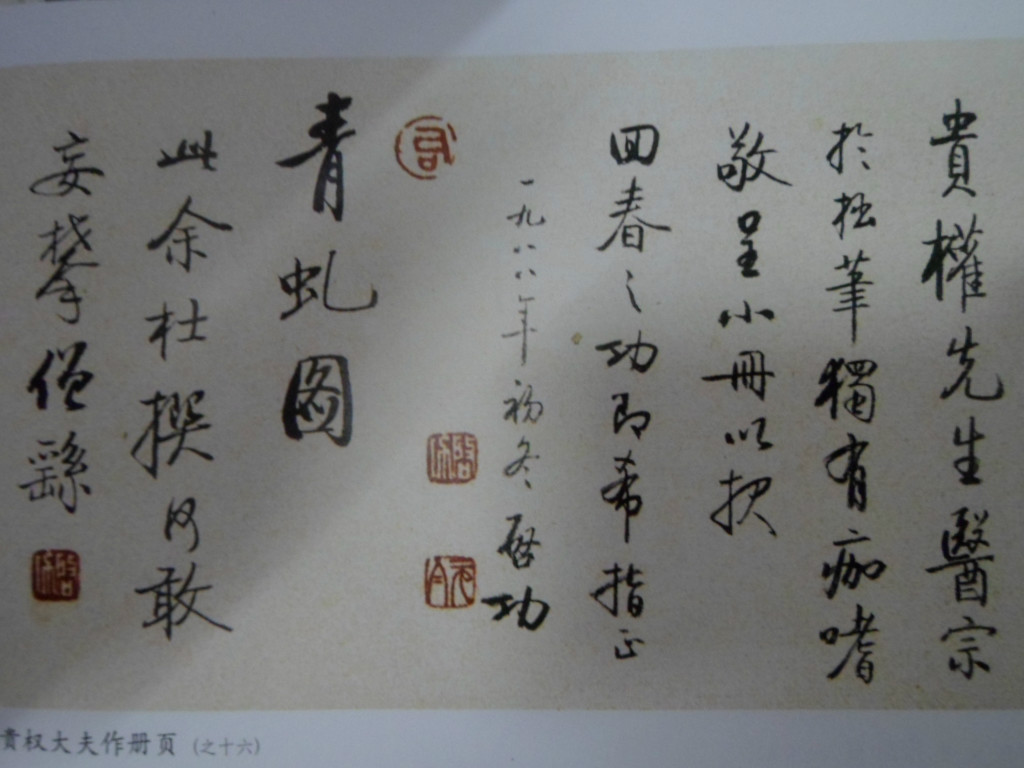 貴權先生醫宗
於拙筆獨有痂嗜
敬呈小冊以报
回春之功即希指正
一九八八年初冬 啓功
青虬圖
此余杜撰何敢
妄攀僧繇
貴权大夫作册页（之十六）